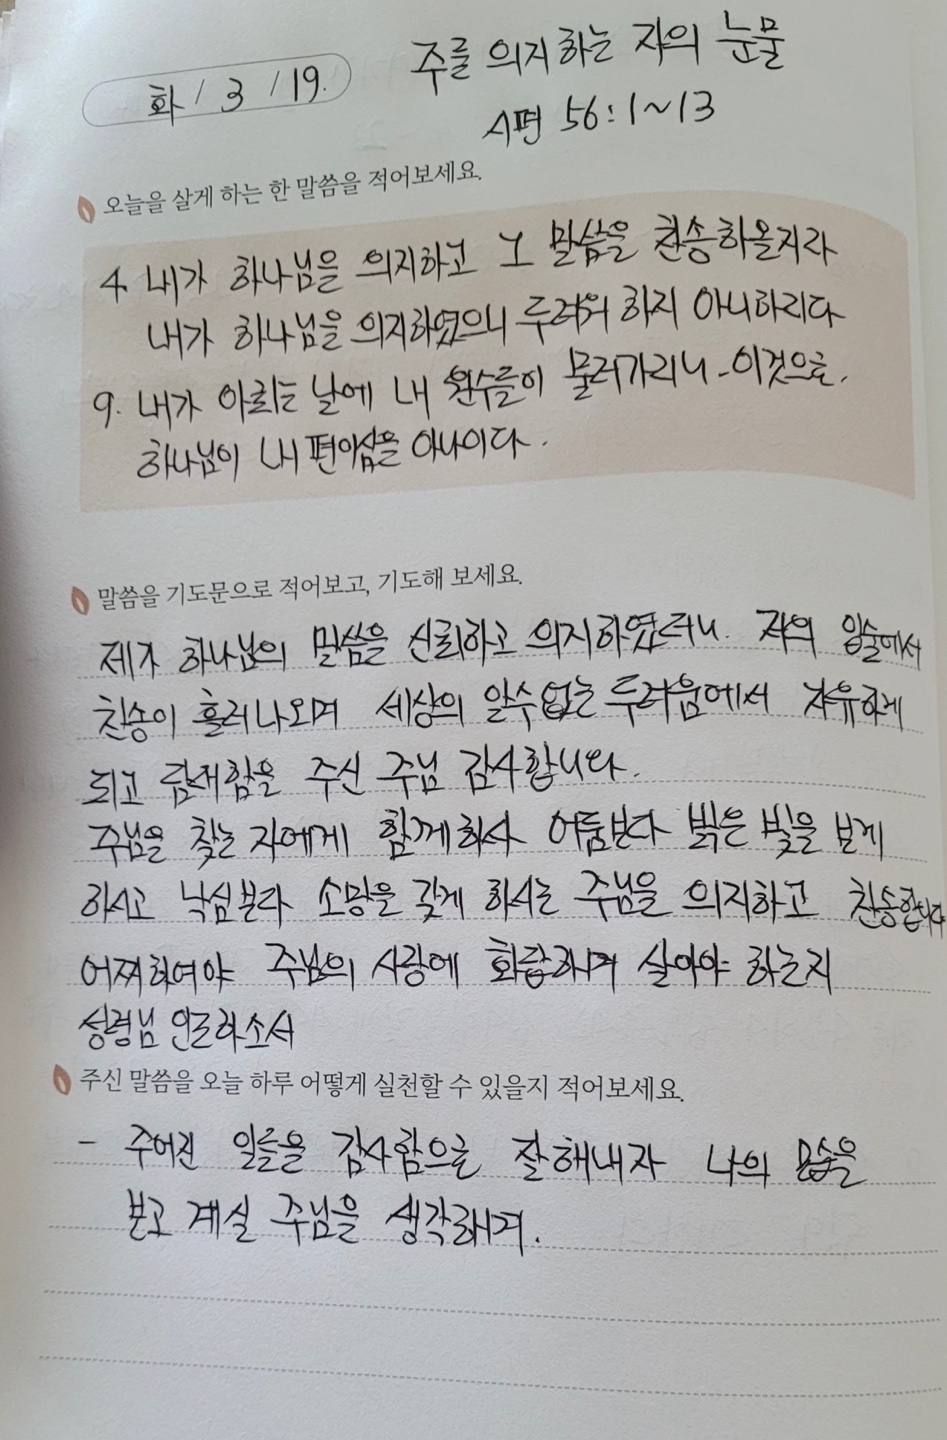 화 / 3 / 19.
주를 의지하는 자의 눈물
시편 56:1~13
오늘을 살게 하는 한 말씀을 적어보세요.
4. 내가 하나님을 의지하고 그 말씀을 찬송하올지라
내가 하나님을 의지하였으니 두려워 하지 아니하리다
9. 내가 아뢰는 날에 내 원수들이 물러가리니 - 이것으로.
하나님이 내 편이심을 아나이다.
말씀을 기도문으로 적어보고, 기도해 보세요.
제가 하나님의 말씀을 신뢰하고 의지하였더니. 저의 입술에서
찬송이 흘러나오며 세상의 알수없는 두려움에서 자유하게
되고 담대함을 주신 주님 감사합니다.
주님을 찾는 자에게 함께하사 어둠보다 밝은 빛을 보게
하시고 낙심보다 소망을 갖게 하시는 주님을 의지하고 찬송합니다
어찌하여야 주님의 사랑에 화답하며 살아야 하는지
성령님 인도하소서
주신 말씀을 오늘 하루 어떻게 실천할 수 있을지 적어보세요.
- 주어진 일들을 감사함으로 잘해내자 나의 모습을
보고 계실 주님을 생각하며.